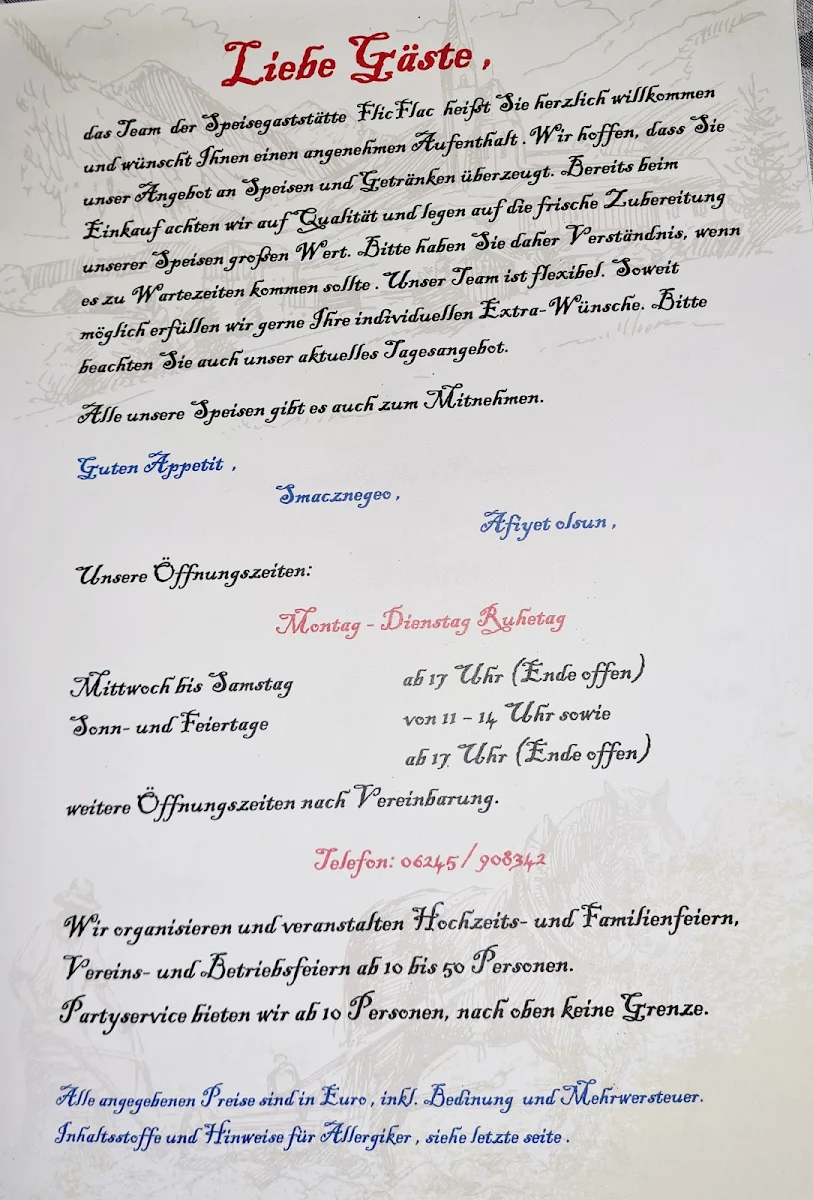 Liebe Gäste ,
das Team der Speisegaststätte FlicFlac heißt Sie herzlich willkommen
und wünscht Ihnen einen angenehmen Aufenthalt . Wir hoffen, dass Sie
unser Angebot an Speisen und Getränken überzeugt. Bereits beim
Einkauf achten wir auf Qualität und legen auf die frische Zubereitung
unserer Speisen großen Wert. Bitte haben Sie daher Verständnis, wenn
es zu Wartezeiten kommen sollte . Unser Team ist flexibel. Soweit
möglich erfüllen wir gerne Ihre individuellen Extra-Wünsche. Bitte
beachten Sie auch unser aktuelles Tagesangebot.
Alle unsere Speisen gibt es auch zum Mitnehmen.
Guten Appetit ,
Smacznegeo ,
Afiyet olsun ,
Unsere Öffnungszeiten:
Montag - Dienstag Ruhetag
Mittwoch bis Samstag ab 17 Uhr (Ende offen)
Sonn- und Feiertage von 11 – 14 Uhr sowie
ab 17 Uhr (Ende offen)
weitere Öffnungszeiten nach Vereinbarung.
Telefon: 06245 / 908342
Wir organisieren und veranstalten Hochzeits- und Familienfeiern,
Vereins- und Betriebsfeiern ab 10 bis 50 Personen.
Partyservice bieten wir ab 10 Personen, nach oben keine Grenze.
Alle angegebenen Preise sind in Euro , inkl. Bedinung und Mehrwersteuer.
Inhaltsstoffe und Hinweise für Allergiker , siehe letzte seite .